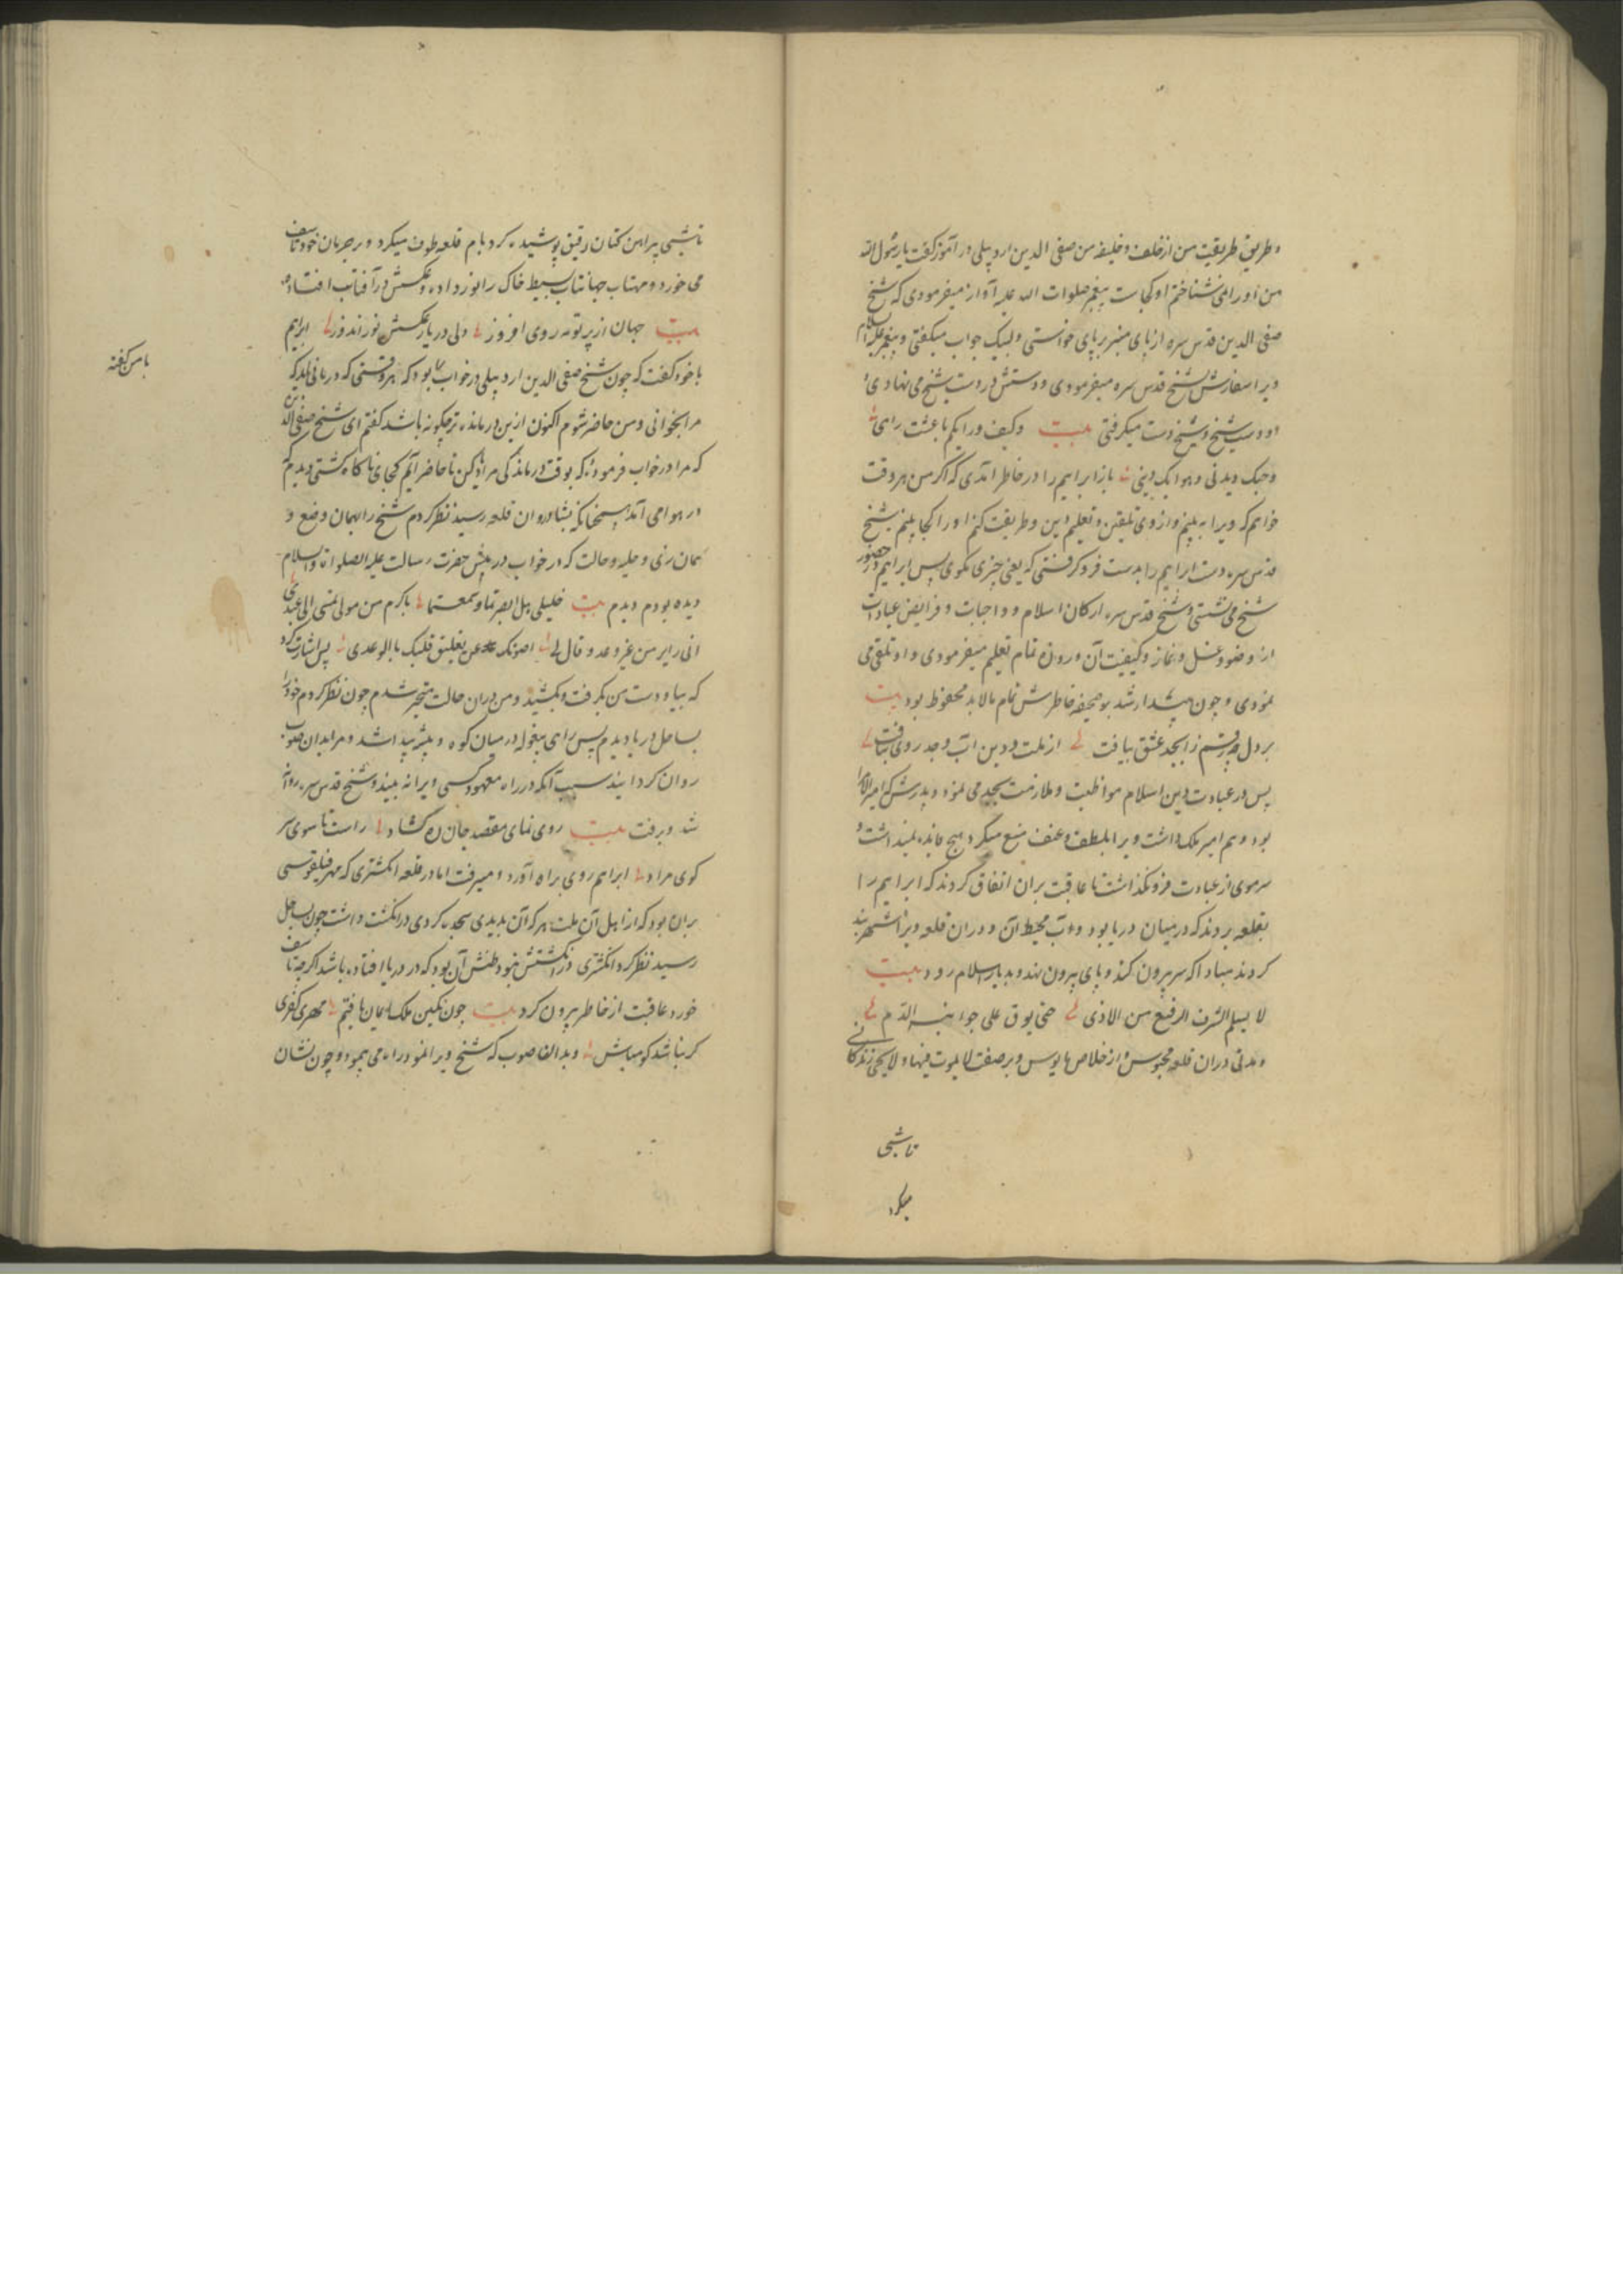 و طریق طریقت من از خلف و خلیفه من صفی الدین اردبیلی در آموز گفت یا رسول الله
من او را نمی شناختم او کجاست پیغمبر صلوات الله علیه آواز میفرمودی که شیخ
صفی الدین قدس سره از پای منبر بر پای خواستی و لبیک جواب میگفتی و پیغمبر علیه السلام
ویرا سفارش شیخ قدس سره میفرمودی و دستش در دست شیخ می نهادی
او دست شیخ و شیخ دست میگرفتی بیت وکیف
وحبک دیدنی وهواک دینی باز ابراهیم را در خاطر آمدی که اگر من هر وقت
خواهم که ویرا به بینم و از وی تلقین و تعلیم دین و طریقت کنم او را کجا بینم شیخ
قدس سره دست ابراهیم را بدست فرو گرفتی که یعنی چیزی نگوی پس ابراهیم در حضور
شیخ می نشستی و شیخ قدس سره ارکان اسلام و واجبات و فرایض عبادات
از وضو و غسل و نماز و کیفیت آن و روزه تمام تعلیم میفرمودی و او تلقی می
نمودی و چون بیدار شد بر صحیفه خاطرش تمام مالابد محفوظ بود بیت
بر دل چو رقم ز ابجد عشق بیافت از ملت و دین اب و جد روی بتافت
پس در عبادت دین اسلام مواظبت و ملازمت بجد می نمود و پدرش که امیر الامرا
بود و هم امیر ملک داشت ویرا بلطف و عنف منع میکرد هیچ فایده نمیداشت و
سرموی از عبادت فرو نگذاشت تا عاقبت بران اتفاق کردند که ابراهیم را
بقلعه بردند که در میان دریا بود و آب محیط آن و دران قلعه ویرا شهربند
کردند مبادا که سر بیرون کند و پای بیرون نهد و بدیار اسلام رود بیت
لا یسلم الشرف الرفیع من الاذی حتی یراق علی جوانبه الدم
و مدتی دران قلعه محبوس و از خلاص مایوس و بر صفت لا یموت فیها ولا یحیی زندگانی
تا شبی
میکرد
تا شبی پیراهن کتان رقیق پوشیده گرد بام قلعه طوف میکرد و بر حرمان خود تاسف
می خورد و مهتاب جهانتاب بسیط خاک را نور داده و عکسش در آفتاب افتاده
بیت جهان از پرتو مه روی افروز ولی در یا ز عکسش نور اندوز ابراهیم
با خود گفت که چون شیخ صفی الدین اردبیلی در خواب بود که هر وقتی که درمانی باید که
مرا بخوانی و من حاضر شوم اکنون ازین درمانده تر چگونه باشد گفتم ای شیخ صفی الدین
که مرا در خواب فرموده که بوقت درماندگی مرا یاد کن تا حاضر آیم کجای ناگاه کشتی دیدم
در هوا می آمد همچنانکه بشادروان قلعه رسید نظر کردم شیخ را بهمان وضع و
همان زی و حلیه و حالت که در خواب در پیش حضرت رسالت علیه الصلوات والسلام
دیده بودم دیدم بیت خلیلی هل ابصرتما وسمعتما باکرم من مولی تمشی الی عبدی
اتی زایر من غیر وعد و قال لی اصونک عن تعلیق قلبک بالوعدی پس اشارت کرد
که بیا و دست من بگرفت و بکشید و من دران حالت متحیر شدم چون نظر کردم خود را
بساحل دریا دیدم پس راهی بیغوله در میان کوه و بیشه پیدا شد و مرا بدان صوب
روان گردانید سبب آنکه در راه معهود کسی ویرا نه بیند و شیخ قدس سره روانه
شد و برفت بیت روی نمای مقصد جان ره گشاد راست تا سوی سر
کوی مراد ابراهیم روی براه آورد و میرفت اما در قلعه انگشتری که مهر فیلقوسی
بران بود که از اهل آن ملت هر که آن بدیدی سجده کردی در انگشت داشت چون بساحل
رسید نظر کرد انگشتری در انگشتش نبود ظنش آن بود که در دریا افتاده باشد اگرچه تاسف
خورد عاقبت از خاطر بیرون کرد بیت چون نگین ملک ایمان یافتم مهری کفری
گر نباشد گو مباش و بدان صوب که شیخ ویرا نمود راه می پیمود و چون نشان
با من گفته